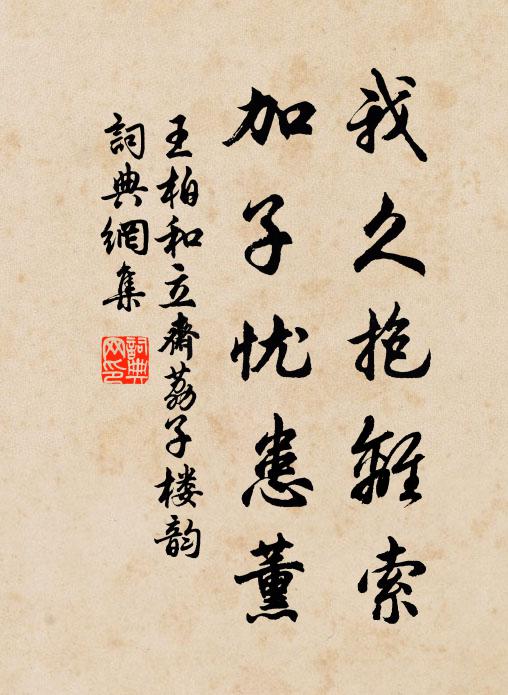 我久抱離索
加子忧患薰
王柏和立齋荔子楼韵
詞典網集
詞典
网印